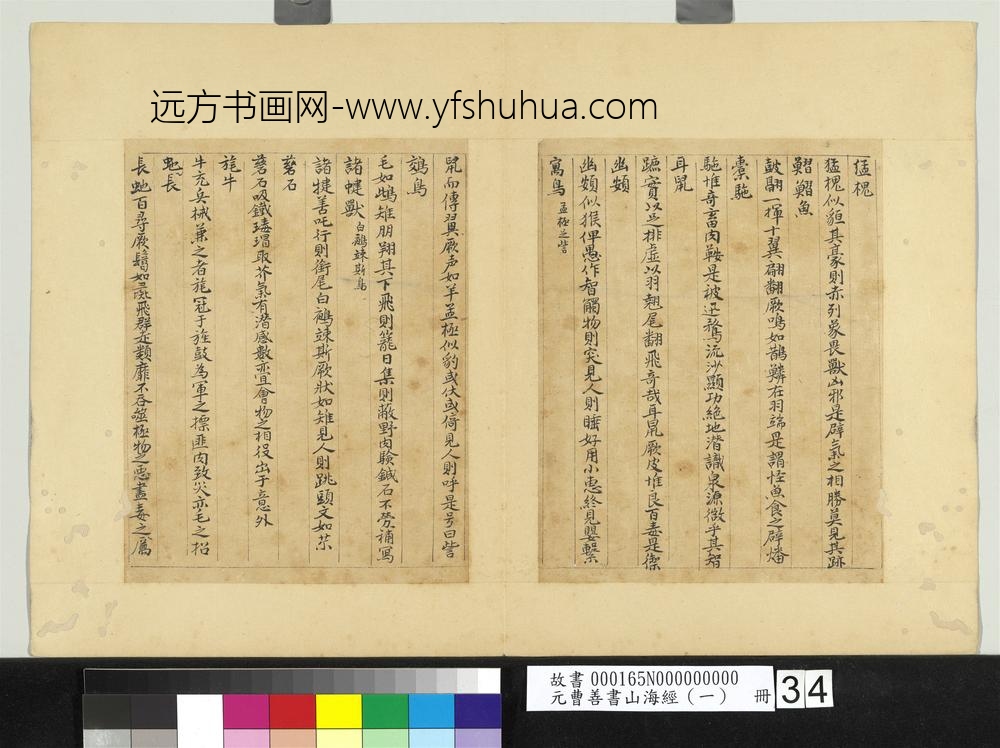 远方书画网-www.yfshuhua.com
孟槐
猛槐似貆其豪則赤列象畏獸凶邪是辟氣之相勝莫見其跡
鰼鰼魚
鼓翮一揮十翼翩翻厥鳴如鵲鱗在羽端是謂怪魚食之辟燔
橐駞
駞惟奇畜肉鞍是被迅騖流沙顯功絕地潛識泉源微乎其智
耳鼠
蹠實以足排虛以羽翹尾翻飛奇哉耳鼠厥皮惟良百毒是禦
幽頞
幽頞似猴俾愚作智觸物則笑見人則睡好用小惠終見嬰繫
寓鳥 孟極之訾
鼠而傅翼厥声如羊孟極似豹或伏或倚見人則呼是号曰訾
鵁鳥
毛如鴟雉朋翔其下飛則籠日集則蔽野肉驗鍼石不勞補寫
諸犍獸 白鵺竦斯鳥
諸犍善吒行則銜尾白鵺竦斯厥狀如雉見人則跳頭文如
礠石
礠石吸鐵瑇瑁取芥氣有潛感數亦宜會物之相役出于意外
旄牛
牛充兵械兼之者旄冠于旌鼓為軍之摽匪肉致災亦毛之招
虵長
長虵百尋厥鬛如彘飛群走類靡不吞噬極物之惡盡毒之厲
故書 000165N000000000
元曹善書山海經(一) 冊 34